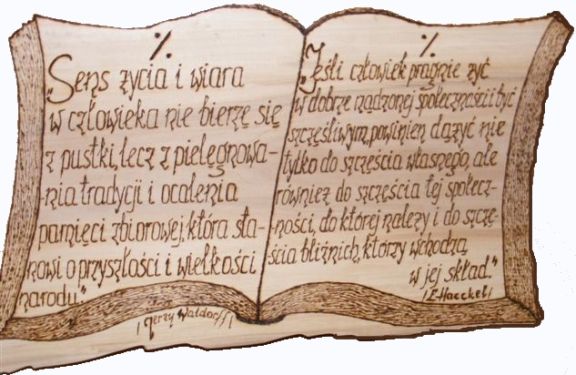 ·/.
„Sens życia i wiara
w człowieka nie bierze się
z pustki, lecz z pielęgnowa-
nia tradycji i ocalenia
pamięci zbiorowej, która sta-
nowi o przyszłości i wielkości
narodu."
/Jerzy Waldorff/
·/.
„Jeśli człowiek pragnie żyć
w dobrze rządzonej społeczności i być
szczęśliwym, powinien dążyć nie
tylko do szczęścia własnego, ale
również do szczęścia tej społecz-
ności, do której należy i do szczę-
ścia bliźnich, którzy wchodzą
w jej skład."
/E. Haeckel/